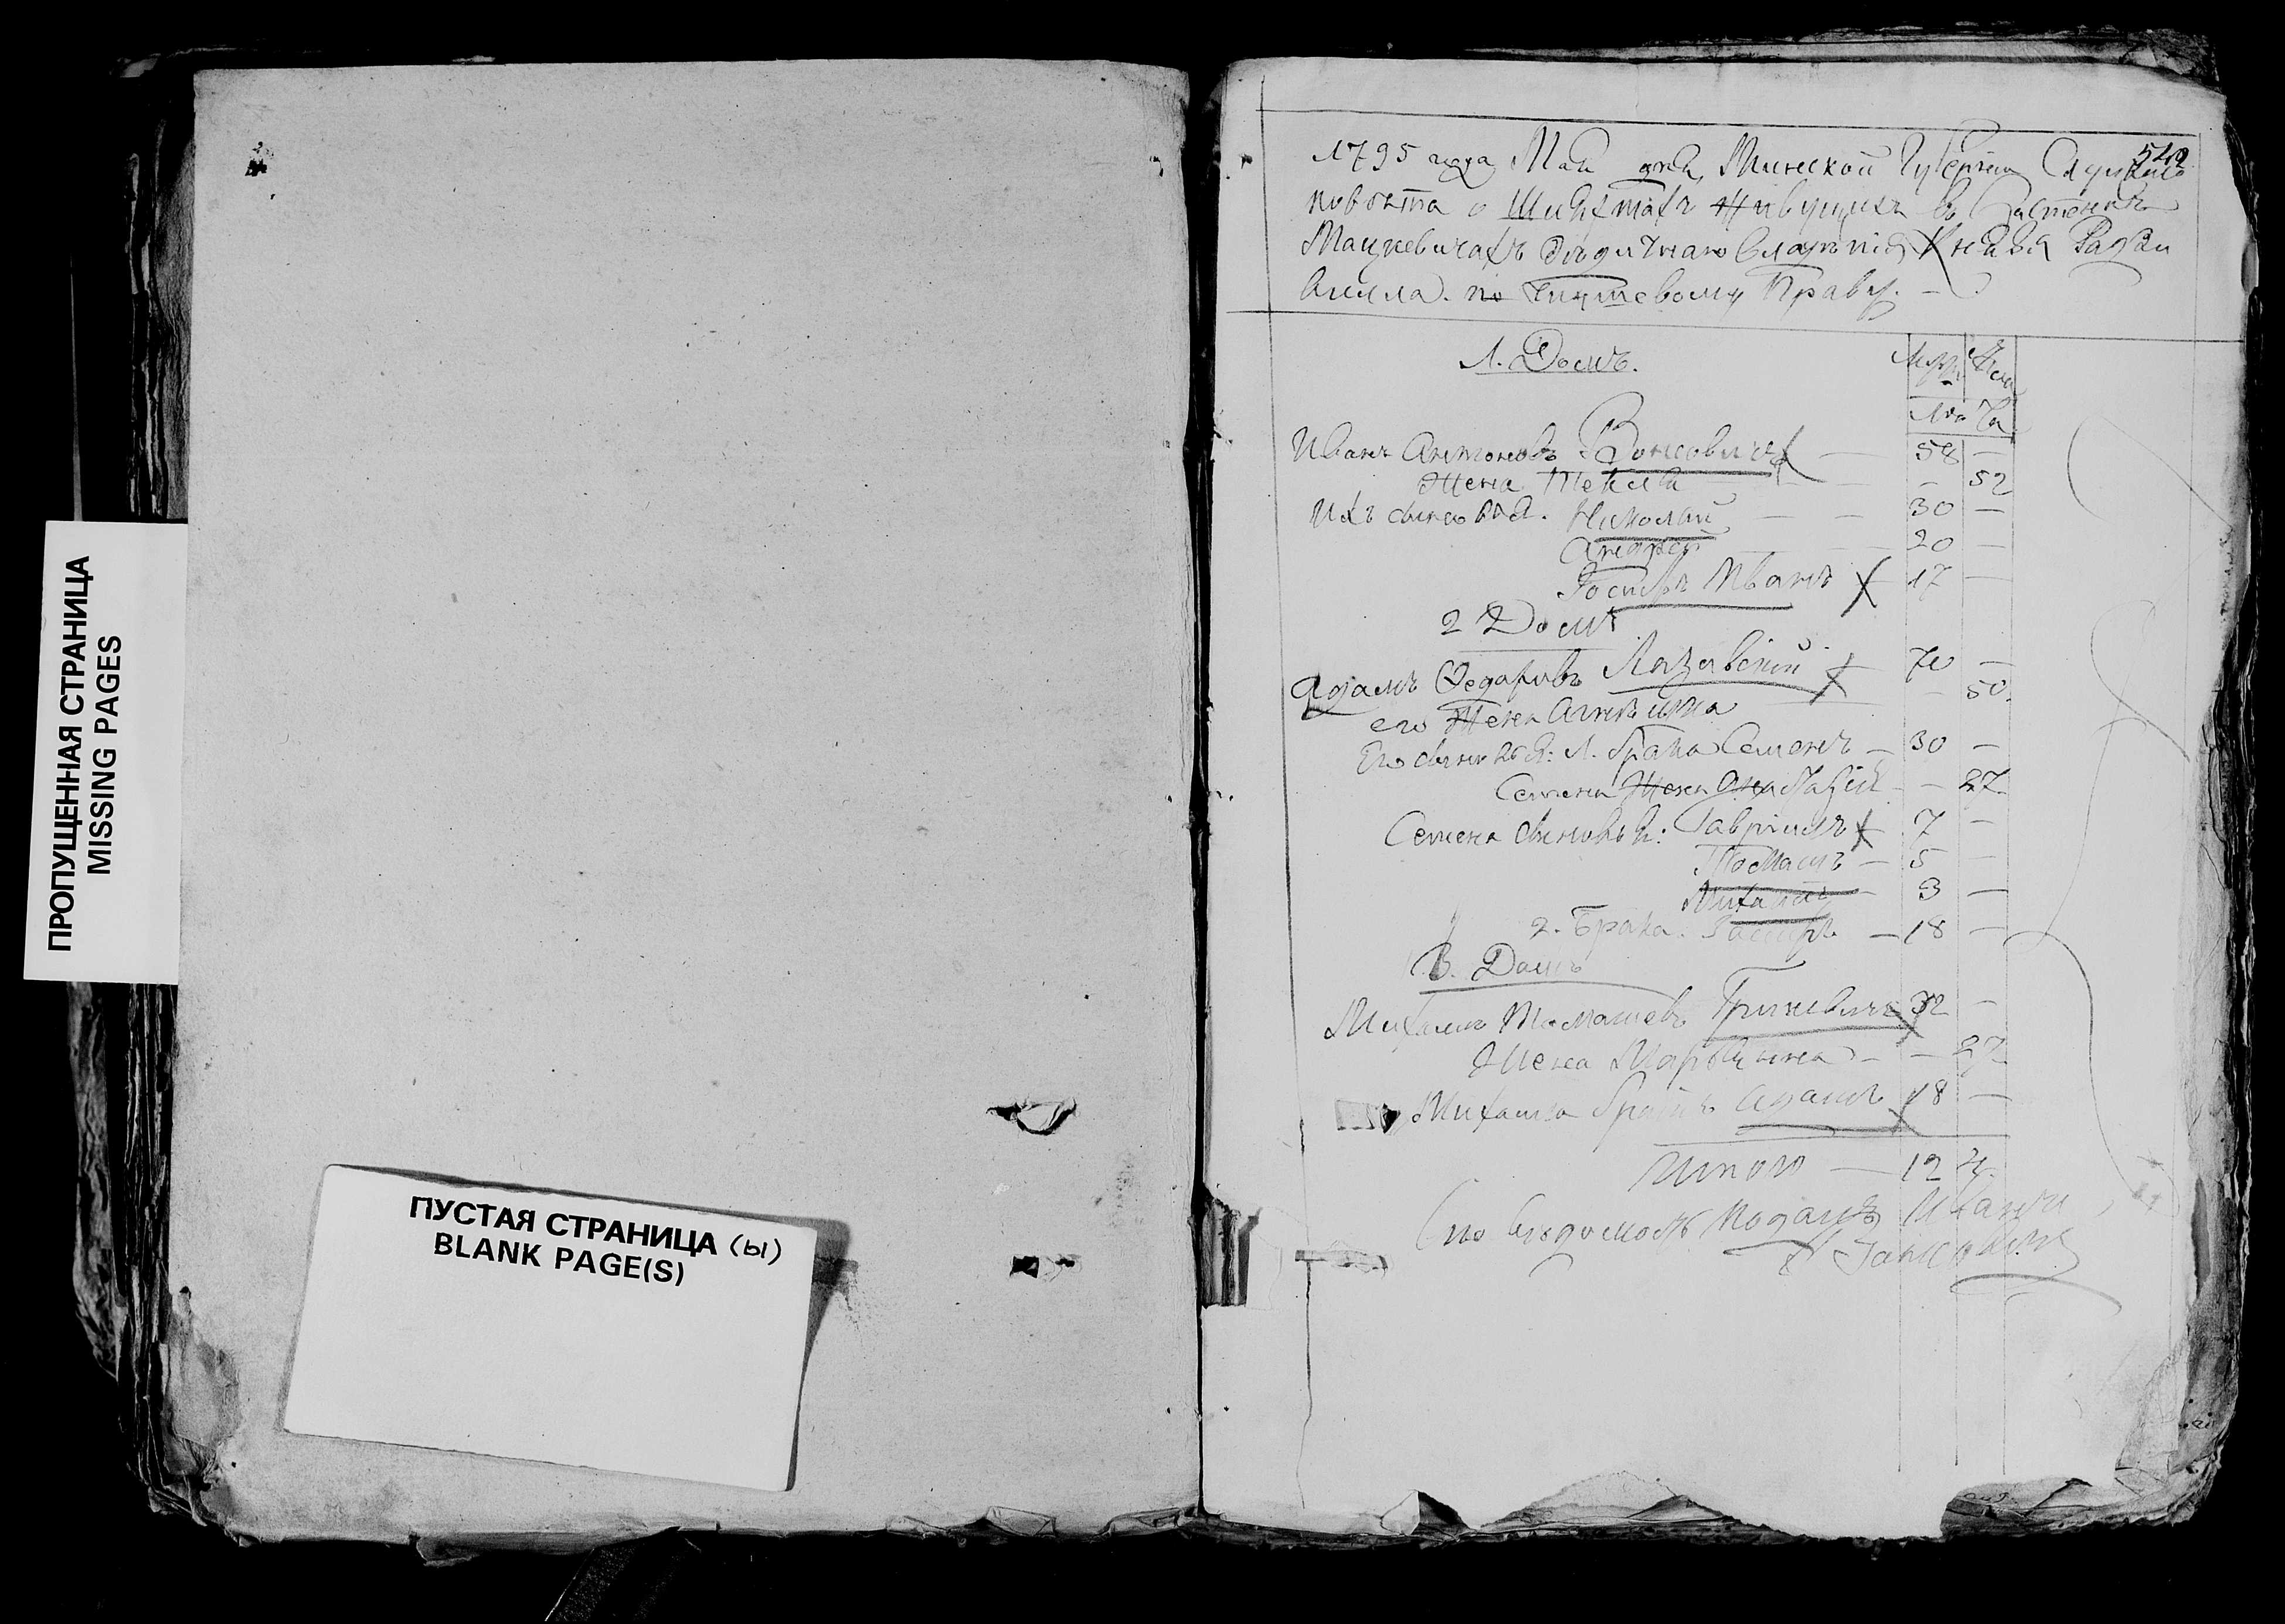 ПРОПУЩЕННАЯ СТРАНИЦА
MISSING PAGES
ПУСТАЯ СТРАНИЦА (ы)
BLANK PAGE(S)
542
1795 года Мая дня, Минской Губерніи
повѣта о Шляхтахъ Живущихъ въ Застенкѣ
Мацкевичахъ Дѣдичнаго Владѣнія Князя Радзи
вилла. по Чиншевому Праву.
1. Домъ.
Муж Жен
Лѣ та
Иванъ Антоновъ — 58 —
Жена Текля — — 52
Ихъ сыновья. Николай — — 30 —
Андрей — 20 —
Иванъ 17 —
2 Домъ
Адамъ Федоровъ 70 —
его Жена — 50
Его сыновья: 1. брака Семенъ — 30 —
Семена Жена — — 27
Семена сыновья: Гавріилъ 7 —
Томашъ — 5 —
Михаилъ — 3 —
2. Брака. — 18 —
3. Домъ
Михаилъ Томашевъ Гриневичъ 32 —
Жена Марьянна — — 27
Михаила братъ Адамъ 18 —
Итого — 12 4
Сію вѣдомость Подалъ Иванъ